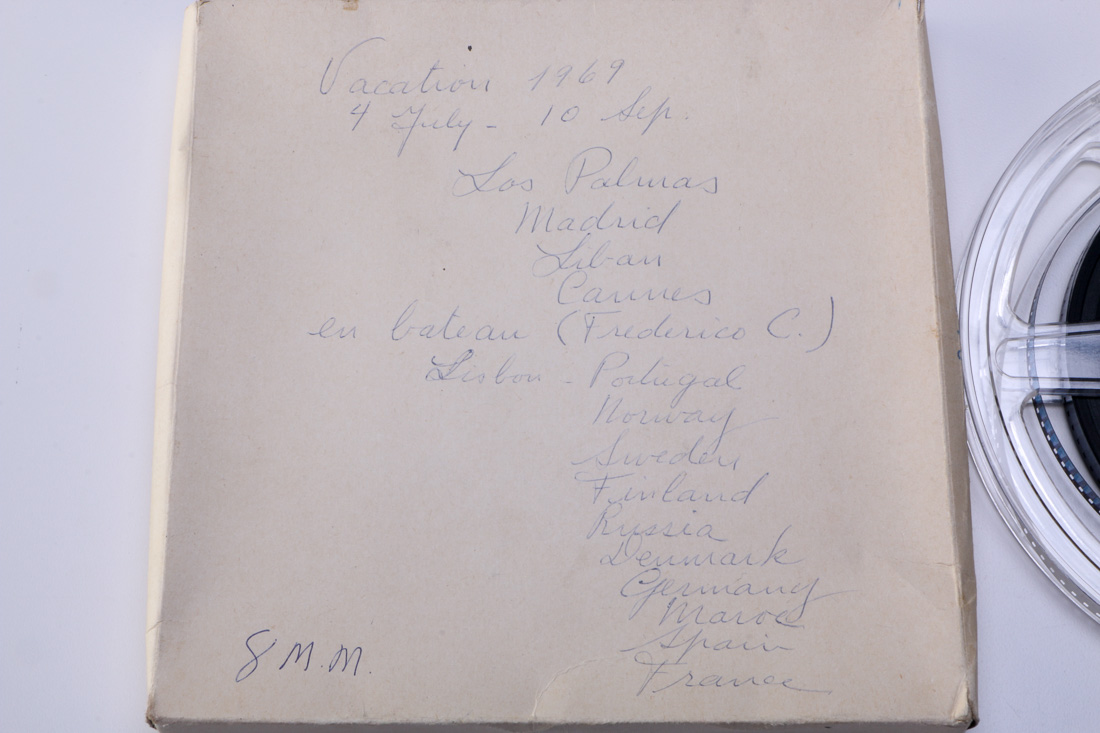 Vacation 1969
4 July - 10 Sep.
Los Palmas
Madrid
Liban
Cannes
en bateau (Frederico C.)
Lisbon - Portugal
Norway
Sweden
Finland
Russia
Denmark
Germany
Maroc
Spain
France
8 M.M.